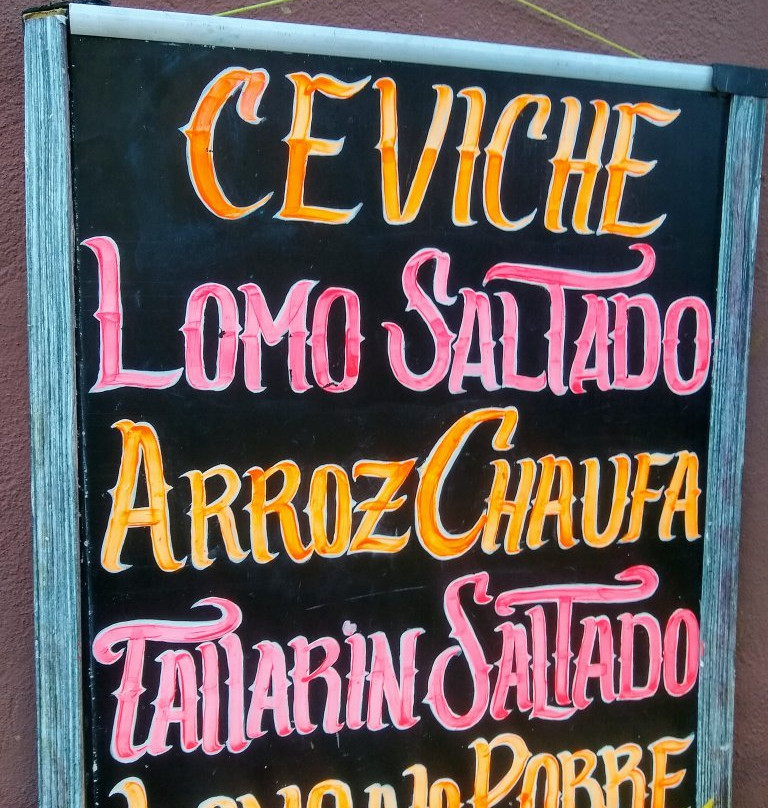 CEVICHE
LOMO SALTADO
ARROZ CHAUFA
TALLARIN SALTADO
LOMO A LO POBRE